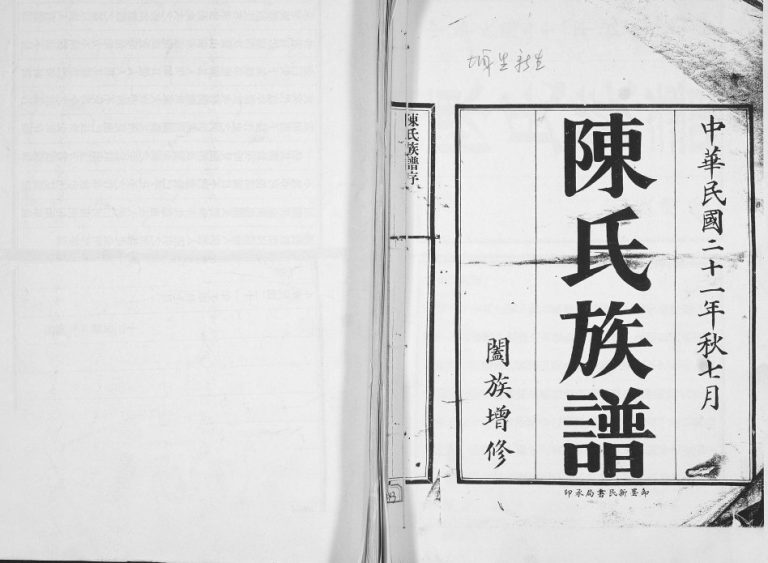 中華民國二十一年秋七月
陳氏族譜
闔族增修
即墨新民書局承印
陳氏族譜序